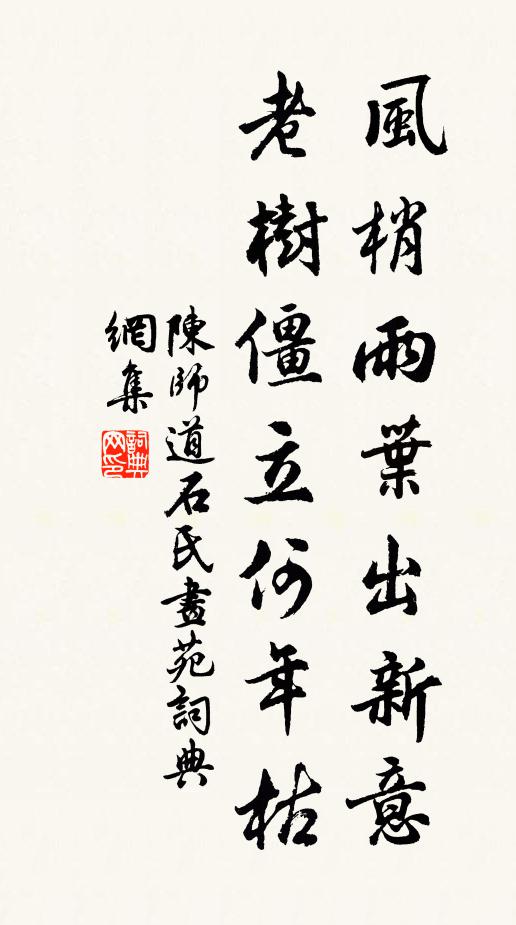 風梢雨葉出新意
老樹僵立何年枯
陳師道石氏畫苑詞典
網集
詞典网印